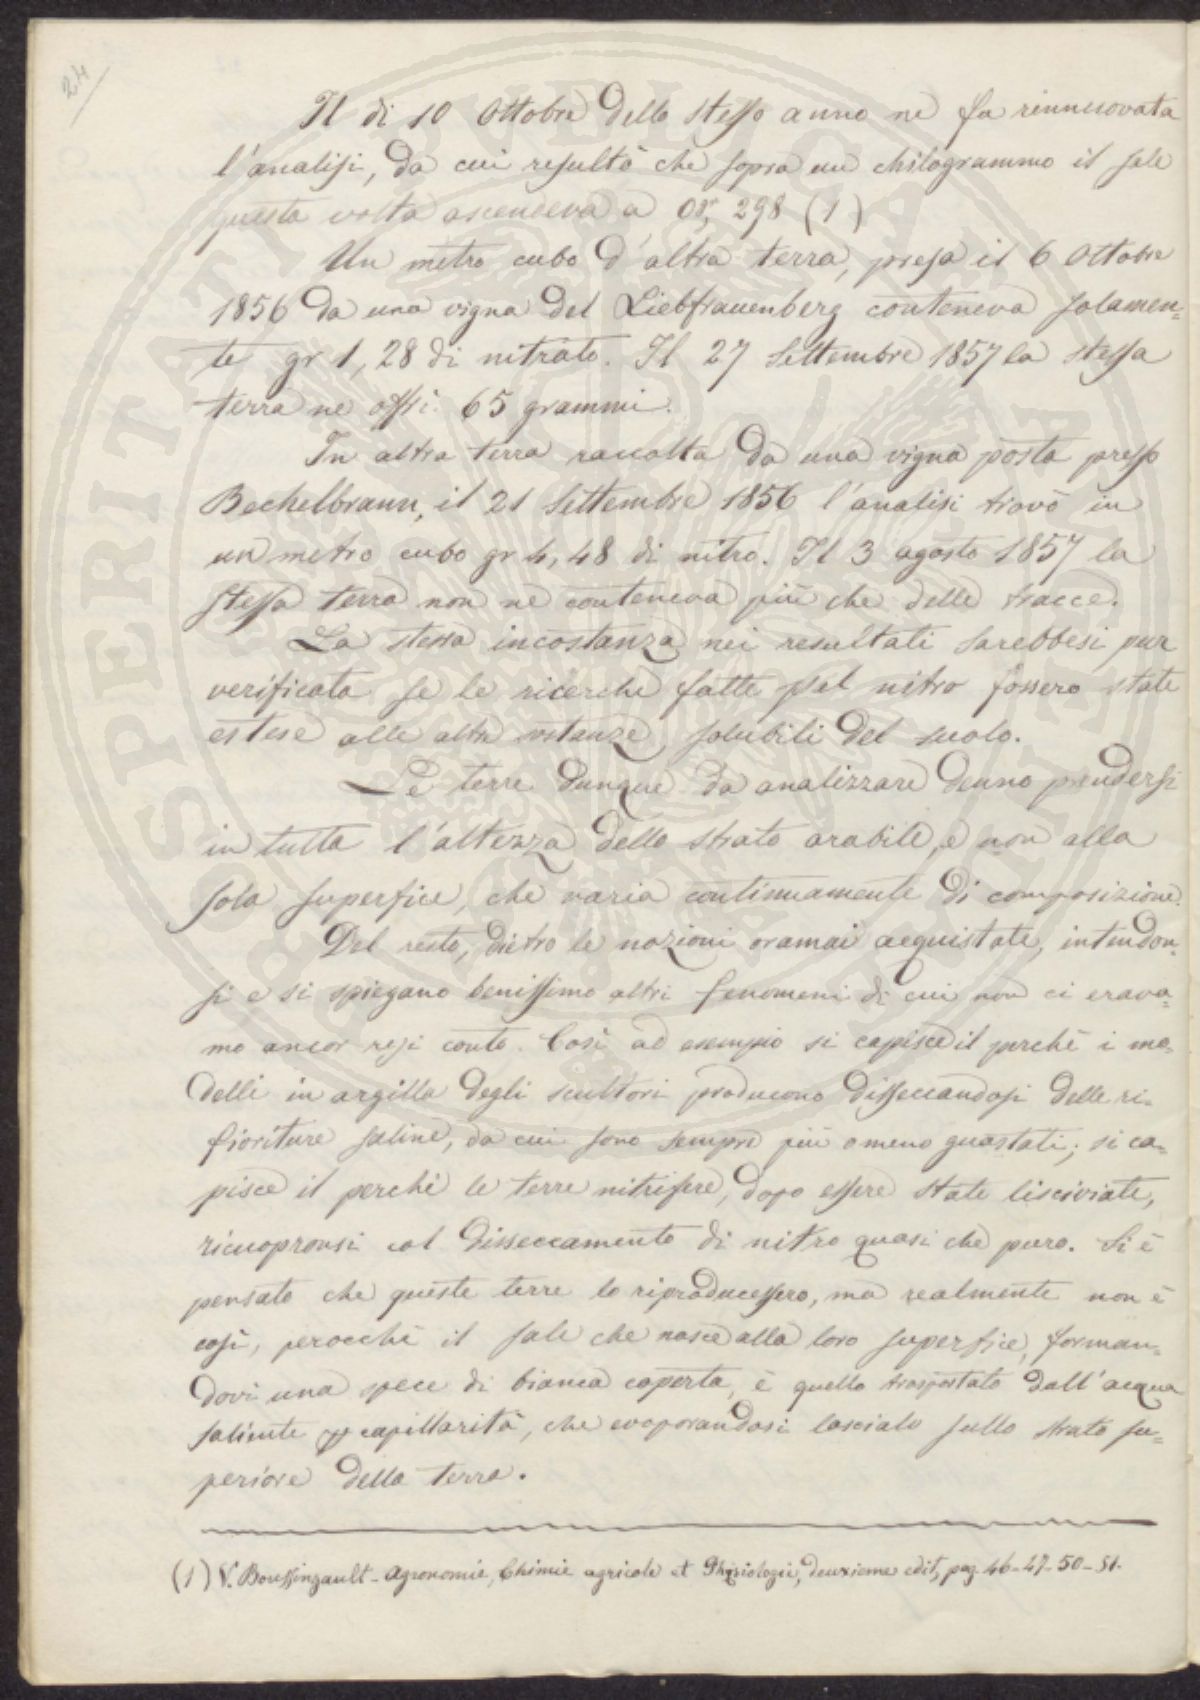 24
Il dì 10 Ottobre dello stesso anno ne fu rinnuovata
l'analisi, da cui resultò che sopra un chilogrammo il sale
questa volta ascendeva a 0gr, 298 (1)
Un metro cubo d'altra terra, presa il 6 Ottobre
1856 da una vigna del Liebfrauenberg conteneva solamen=
te gr 1,28 di nitrato. Il 27 Settembre 1857 la stessa
terra ne offrì 65 grammi.
In altra terra raccolta da una vigna posta presso
Bechelbraun, il 21 Settembre 1856 l'analisi trovò in
un metro cubo gr 4,48 di nitro. Il 3 agosto 1857 la
stessa terra non ne conteneva più che delle tracce.
La stessa incostanza nei resultati sarebbesi pur
verificata se le ricerche fatte pel nitro fossero state
estese alle altre sostanze solubili del suolo.
Le terre dunque da analizzare denno prendersi
in tutta l'altezza dello strato arabile, e non alla
sola superfice, che varia continuamente di composizione.
Del resto, dietro le nozioni oramai acquistate, intendon=
si e si spiegano benissimo altri fenomeni di cui non ci erava=
mo ancor resi conto. Così ad esempio si capisce il perchè i mo=
delli in argilla degli scultori producono disseccandosi delle ri=
fioriture saline, da cui sono sempre più o meno guastati; si ca=
pisce il perchè le terre nitrifere, dopo essere state lisciviate,
ricuopronsi col disseccamento di nitro quasi che puro. Si è
pensato che queste terre lo riproducessero, ma realmente non è
così, perocchè il sale che nasce alla loro superfice, forman=
dovi una spece di bianca coperta, è quello trasportato dall'acqua
saliente per capillarità, che evaporandosi lascialo sullo strato su=
periore della terra.
(1) V. Boussingault - Agronomie, Chimie agricole et Physiologie, deuxieme edit, pag. 46-47-50-51.